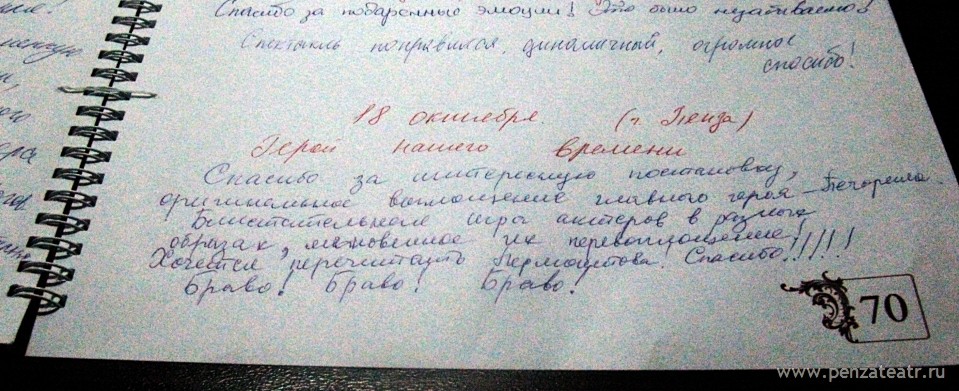 Спасибо за подаренные эмоции! Это было незабываемо!
Спектакль понравился, динамичный, огромное
спасибо!
18 октября. (г. Пенза)
Герой нашего времени
Спасибо за интересную постановку,
оригинальное воплощение главного героя – Печорина.
Блистательная игра актеров в разных
образах, мгновенное их перевоплощение!
Хочется перечитать Лермонтова. Спасибо!!!!!
Браво! Браво! Браво!
70
www.penzateatr.ru